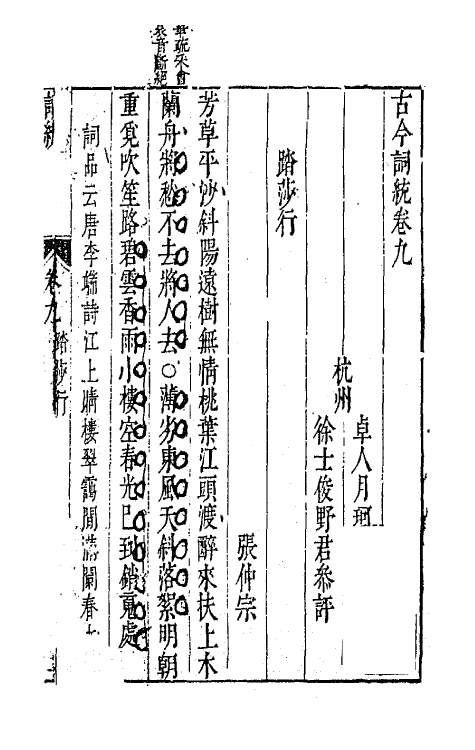 古今詞統卷九
杭州
卓人月珂月
徐士俊野君參評
踏莎行
張仲宗
芳草平沙斜陽遠樹無情桃葉江頭渡醉來扶上木
蘭舟將愁不去將人去○薄劣東風夭斜落絮明朝
重覓吹笙路碧雲香雨小樓空春光已到銷魂處
詞品云唐李端詩江上晴樓翠靄間滿闌春
卷九
踏莎行